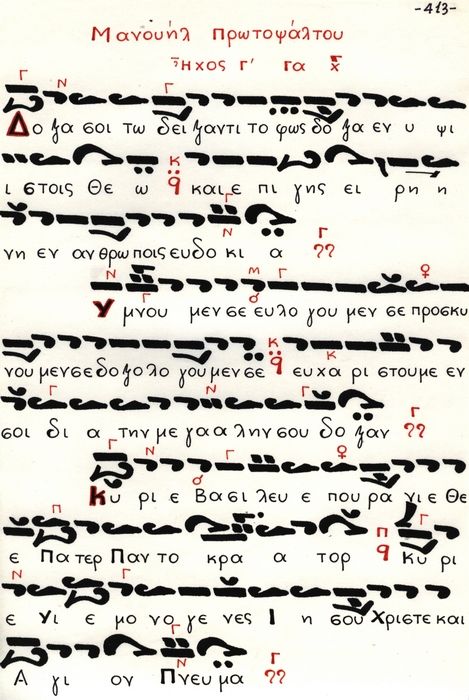 -413-
Μανουήλ Πρωτοψάλτου
Ἦχος Γ' Γα
Δο ξα σοι τω δει ξαντι το φως δο ξα εν υ ψι
ι στοις Θε ω και ε πι γης ει ρη η
νη εν ανθρω ποις ευδο κι α
Υ μνου μεν σε ευλο γου μεν σε προσκυ
νου μεν σε δοξολο γου μεν σε ευ χα ρι στου με εν
σοι δι α την με γα α λην σου δο ξαν
Κυ ρι ε Βα σι λευ ε που ρα νι ε Θε
ε Πα τερ Παν το κρα α τορ Κυ ρι
ε Υι ε μο νο γε νες Ι η σου Χριστε και
Α γι ον Πνευ μα